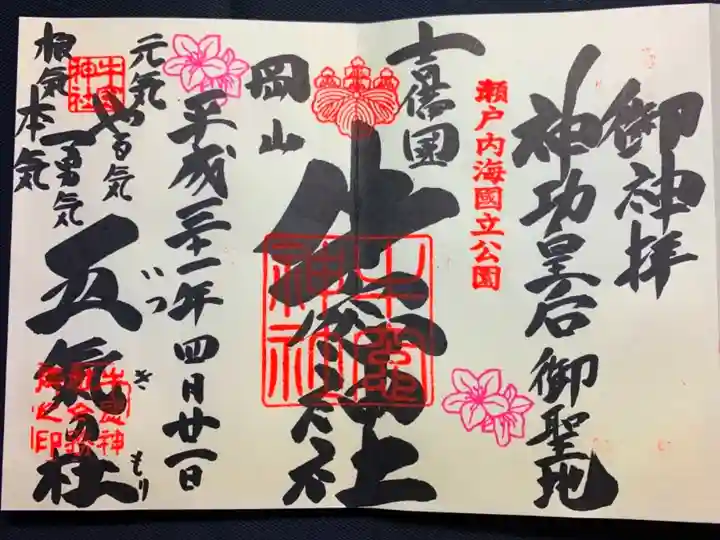 御神拝
神功皇后御聖地
瀬戸内海國立公園
吉備国
牛窓神社
岡山
平成三十一年四月廿一日
元気
やる気
勇気
根気
本気
五気の杜
いつきもり
牛窓神社
牛窓神社